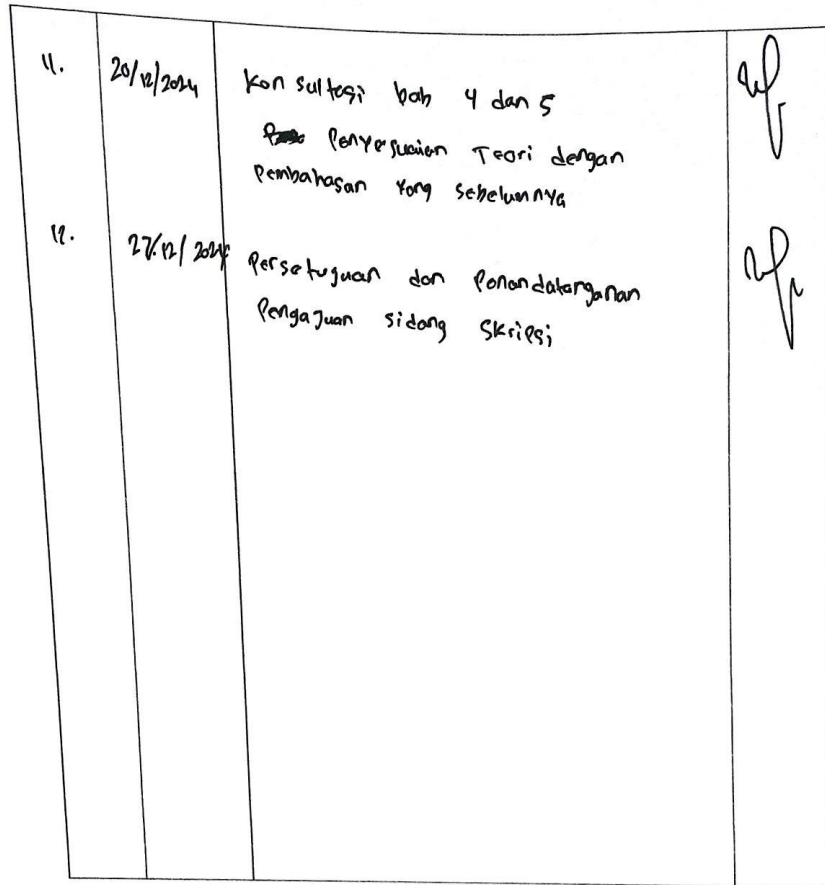 11. 20/12/2024 Konsultasi bab 4 dan 5
Penyesuaian Teori dengan
Pembahasan yang sebelumnya
12. 27/12/2024 Persetujuan dan Penandatanganan
Pengajuan sidang Skripsi